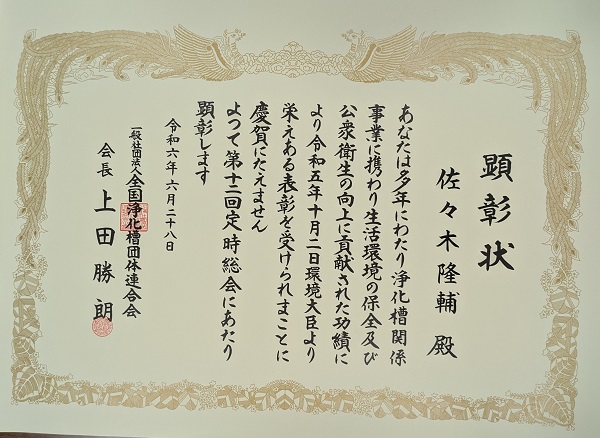 顕彰状
佐々木隆輔 殿
あなたは多年にわたり浄化槽関係
事業に携わり生活環境の保全及び
公衆衛生の向上に貢献された功績に
より令和五年十月二日環境大臣より
栄えある表彰を受けられまことに
慶賀にたえません
よって第十二回定時総会にあたり
顕彰します
令和六年六月二十八日
一般社団法人全国浄化槽団体連合会
会長 上田勝朗